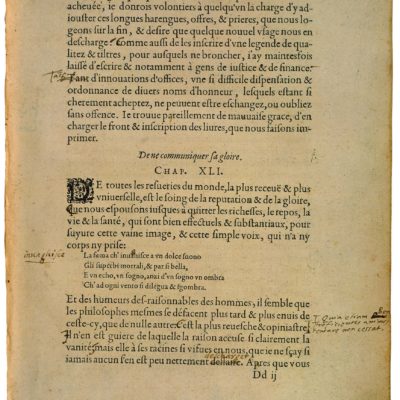 acheuée, ie donrois volontiers à quelqu'vn la charge d'y ad-
iouster ces longues harengues, offres, & prieres, que nous lo-
geons sur la fin, & desire que quelque nouuel vsage nous en
descharge Comme aussi de les inscrire d'vne legende de qua-
litez & tiltres, pour ausquels ne broncher, i'ay maintesfois
laissé d'escrire & notamment à gens de iustice & de finance
Tant d'innouations d'offices, vne si difficile dispensation &
ordonnance de diuers noms d'honneur, lesquels estant si
cherement acheptez, ne peuuent estre eschangez, ou oubliez
sans offence. Ie trouue pareillement de mauuaise grace, d'en
charger le front & inscription des liures, que nous faisons im-
primer.
De ne communiquer sa gloire.
CHAP. XLI.
DE toutes les resueries du monde, la plus receuë & plus
vniuerselle, est le soing de la reputation & de la gloire,
que nous espousons iusques à quitter les richesses, le repos, la
vie & la santé, qui sont biens effectuels & substantiaux, pour
suyure cette vaine image, & cette simple voix, qui n'a ny
corps ny prise:
La fama ch'inuaghisce a vn dolce suono
Gli superbi mortali, & par si bella,
E vn echo, vn sogno, anzi d'vn sogno vn ombra
Ch'ad ogni vento si dilegua & sgombra.
Et des humeurs des-raisonnables des hommes, il semble que
les philosophes mesmes se défacent plus tard & plus enuis de
ceste-cy, que de nulle autre: c'est la plus reuesche & opiniastre
Il n'en est guiere de laquelle la raison accuse si clairement la
vanité: mais elle a ses racines si vifues en nous, que ie ne sçay si
iamais aucun s'en est peu nettement
Apres que vous
Dd ij